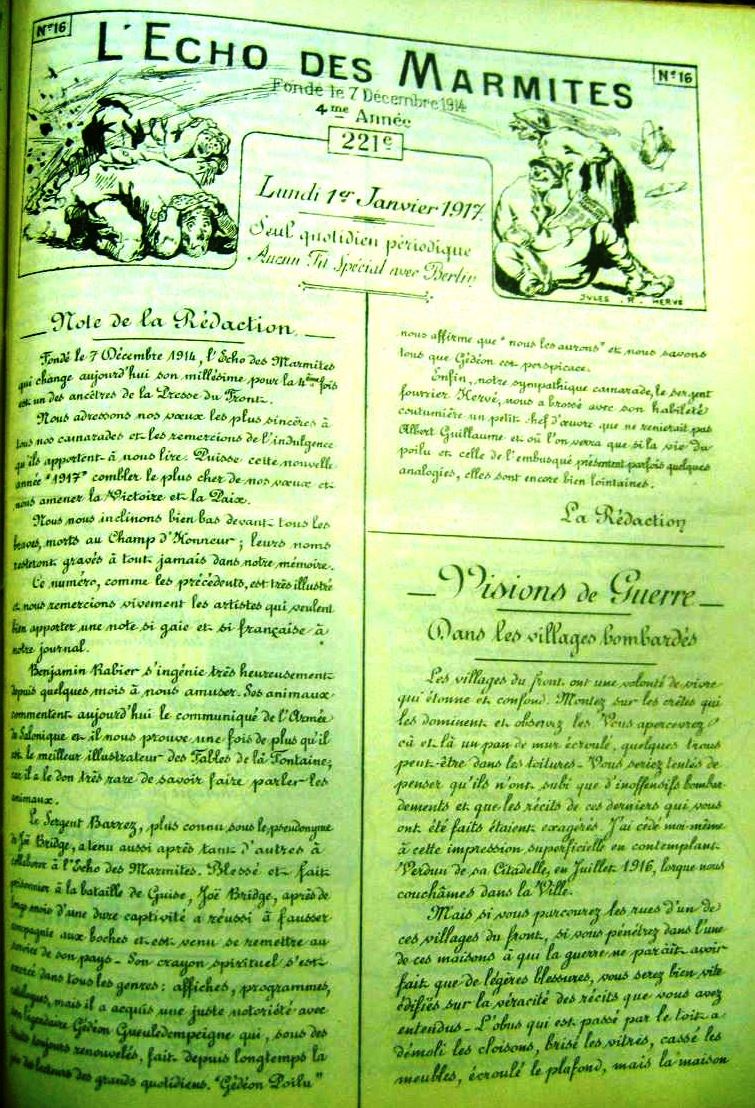 Nº 16
L'ECHO DES MARMITES
Nº 16
Fondé le 7 Décembre 1914
4me Année
221e
Lundi 1er Janvier 1917.
Seul quotidien périodique
Aucun Fil Spécial avec Berlin
JULES. R. HERVÉ
Note de la Rédaction
Fondé le 7 Décembre 1914, l'Echo des Marmites
qui change aujourd'hui son millésime pour la 4ème fois
est un des ancêtres de la Presse du Front.
Nous adressons nos vœux les plus sincères à
tous nos camarades et les remercions de l'indulgence
qu'ils apportent à nous lire. Puisse cette nouvelle
année "1917" combler le plus cher de nos vœux et
nous amener la Victoire et la Paix.
Nous nous inclinons bien bas devant tous les
braves, morts au Champ d'Honneur ; leurs noms
resteront gravés à tout jamais dans notre mémoire.
Ce numéro, comme les précédents, est très illustré
et nous remercions vivement les artistes qui veulent
bien apporter une note si gaie et si française à
notre journal.
Benjamin Rabier s'ingénie très heureusement
depuis quelques mois à nous amuser. Ses animaux
commentent aujourd'hui le communiqué de l'Armée
de Salonique et il nous prouve une fois de plus qu'il
est le meilleur illustrateur des Fables de la Fontaine;
car il a le don très rare de savoir faire parler les
animaux.
Le Sergent Barrez, plus connu sous le pseudonyme
de Joë Bridge, a tenu aussi après tant d'autres à
collaborer à l'Echo des Marmites. Blessé et fait
prisonnier à la bataille de Guise, Joë Bridge, après de
longs mois d'une dure captivité a réussi à fausser
compagnie aux boches et est venu se remettre au
service de son pays - Son crayon spirituel s'est
exercé dans tous les genres : affiches, programmes,
catalogues, mais il a acquis une juste notoriété avec
son légendaire Gédéon Gueuledempeigne qui, sous des
toujours renouvelés, fait depuis longtemps la
joie des lecteurs des grands quotidiens. "Gédéon Poilu"
nous affirme que "nous les aurons" et nous savons
tous que Gédéon est perspicace.
Enfin, notre sympathique camarade, le sergent
fourrier Hervé, nous a brossé avec son habileté
coutumière un petit chef d'œuvre que ne renierait pas
Albert Guillaume et où l'on verra que si la vie du
poilu et celle de l'embusqué présentent parfois quelques
analogies, elles sont encore bien lointaines.
La Rédaction
Visions de Guerre
Dans les villages bombardés
Les villages du front ont une volonté de vivre
qui étonne et confond. Montez sur les crêtes qui
les dominent et observez les. Vous apercevrez
çà et là un pan de mur écroulé, quelques trous
peut-être dans les toitures - Vous seriez tentés de
penser qu'ils n'ont subi que d'inoffensifs bombar-
dements et que les récits de ces derniers qui vous
ont été faits étaient exagérés. J'ai cédé moi-même
à cette impression superficielle en contemplant
Verdun de sa Citadelle, en Juillet 1916, lorque nous
couchâmes dans la Ville.
Mais si vous parcourez les rues d'un de
ces villages du front, si vous pénétrez dans l'une
de ces maisons à qui la guerre ne paraît avoir
fait que de légères blessures, vous serez bien vite
édifiés sur la véracité des récits que vous avez
entendus - L'obus qui est passé par le toit a
démoli les cloisons, brisé les vitres, cassé les
meubles, écroulé le plafond, mais la maison